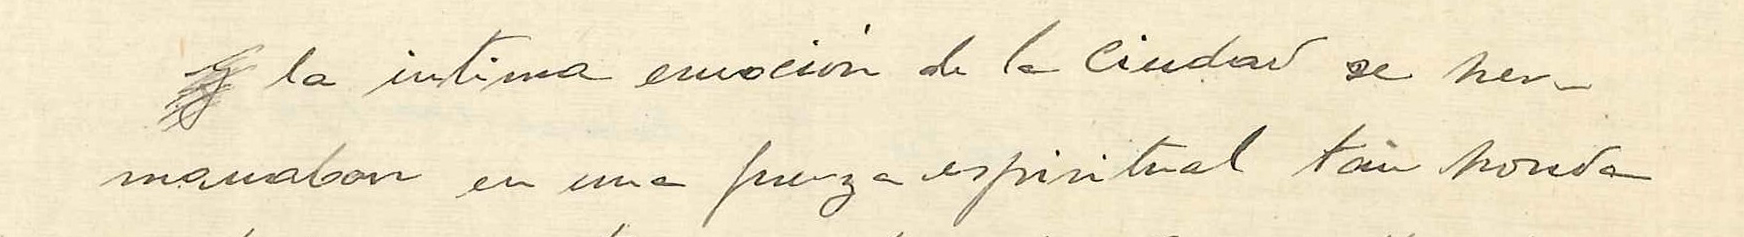 la intima emoción de la Ciudad se her-
manaban en una fuerza espiritual tan honda